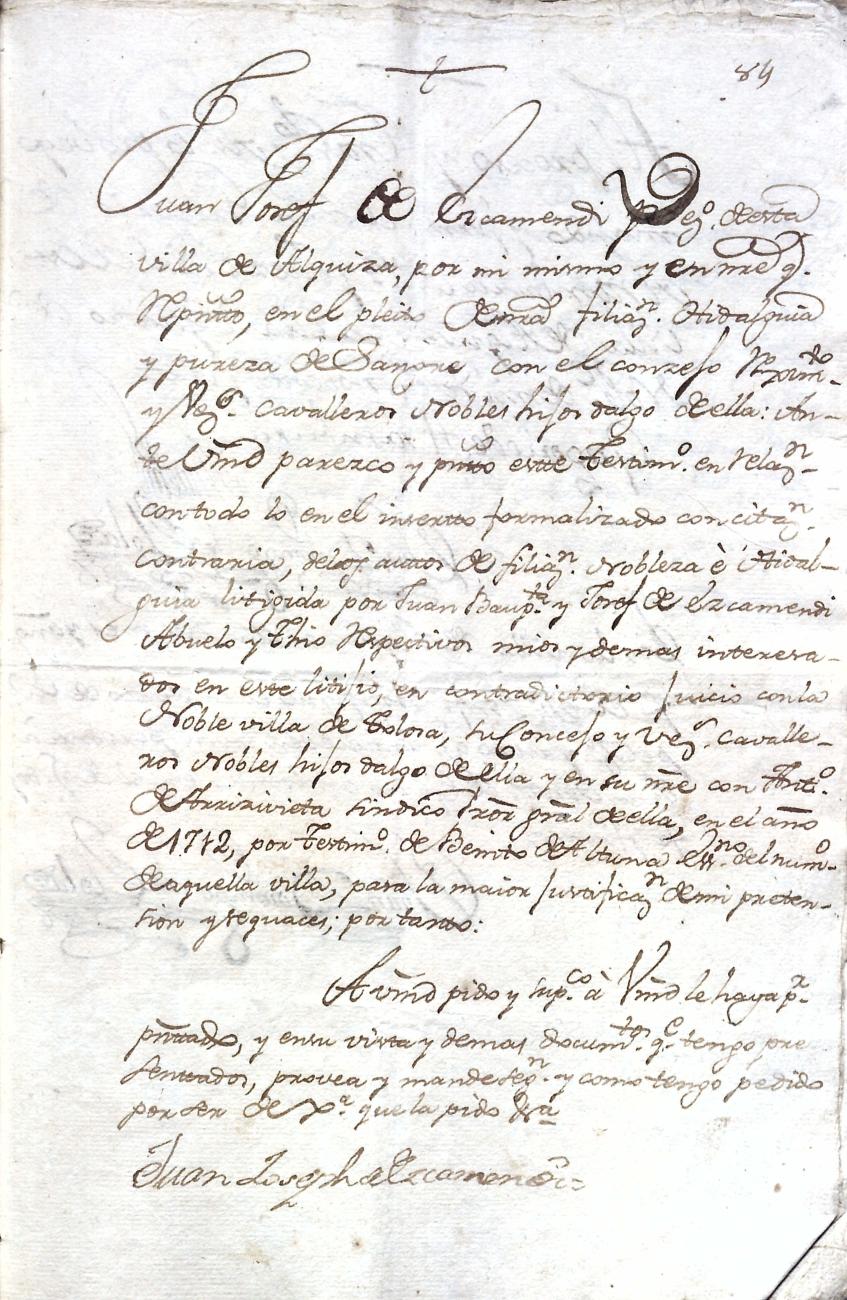 84
Juan Josef de Ezcamendi Vez.º de esta
villa de Alquiza, por mi mismo y en nr̃e q.
Rpintto, en el pleito de nra filiaz.n Hidalguia
y pureza de Sangre con el conzejo Rexim.to
y Vez.s Cavalleros Nobles hijosdalgo de ella: An-
te Vmd parezco y pntto estte Testim.º en relaz.n
con todo lo en el insertto formalizado con citaz.n
contraria, delos auttos de filiaz.n Nobleza è Hidal-
guia litigida por Juan Baup.ta y Josef de Ezcamendi
Abuelo y Thio Respectivos mios y demas interesa-
dos en este litijio, en contradictorio Juicio con la
Noble villa de Tolosa, su Concejo y Vez.s Cavalle-
ros Nobles hijosdalgo de ella y en su nr̃e con Ant.º
de Arrizivieta sindico Pror gñal de ella, en el año
de 1712, por Testim.º de Benito de Altuna Ess.no del num.º
de aquella villa, para la maior Justificaz.n de mi preten-
sion y sequaces; por tanto:
A vm̃d pido y sup.co à Vm̃d le haya p.r
pñttado, y en su vista y demas docum.tos q.e tengo pre
senttados, provea y mande seg.n y como tengo pedido
por ser de Xª que la pido &ª
Juan Joseph de Ezcamendi